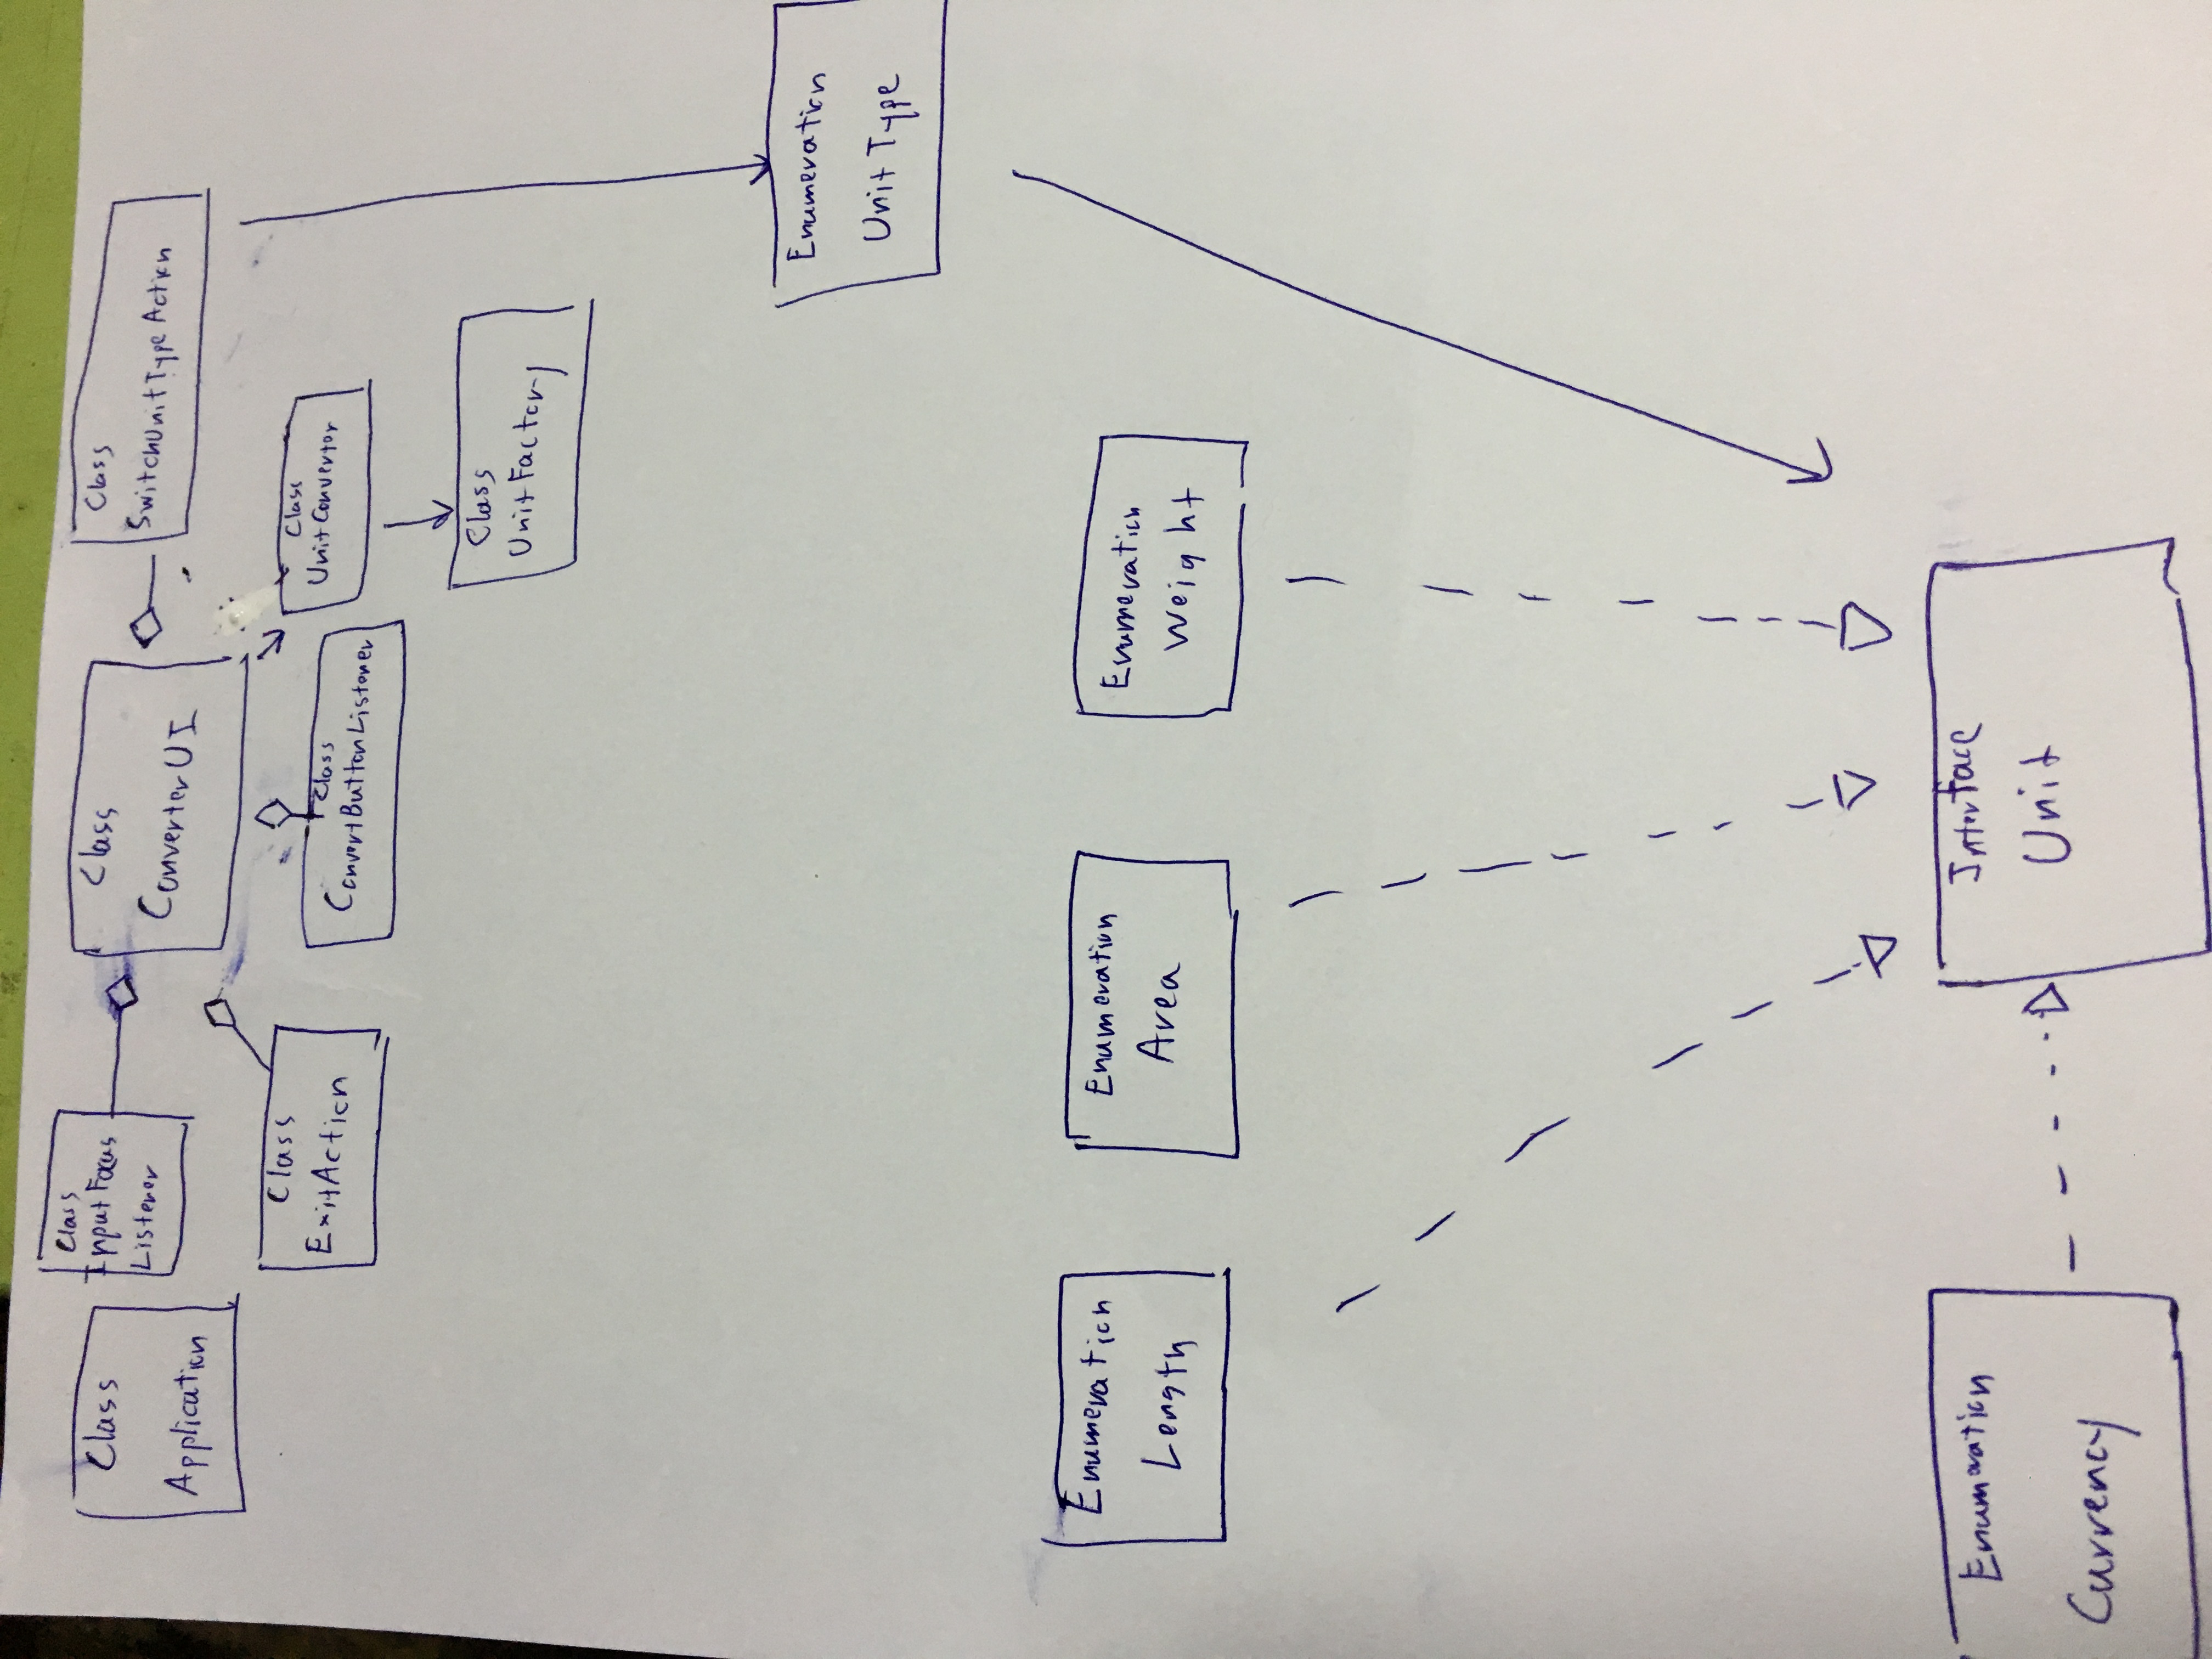 Class
Application
Class
InputFocus
Listener
Class
ConverterUI
Class
SwitchUnitTypeAction
Class
ExitAction
Class
ConvertButtonListener
Class
UnitConvertor
Class
UnitFactory
Enumeration
UnitType
Enumeration
Length
Enumeration
Area
Enumeration
Weight
Enumeration
Currency
Interface
Unit